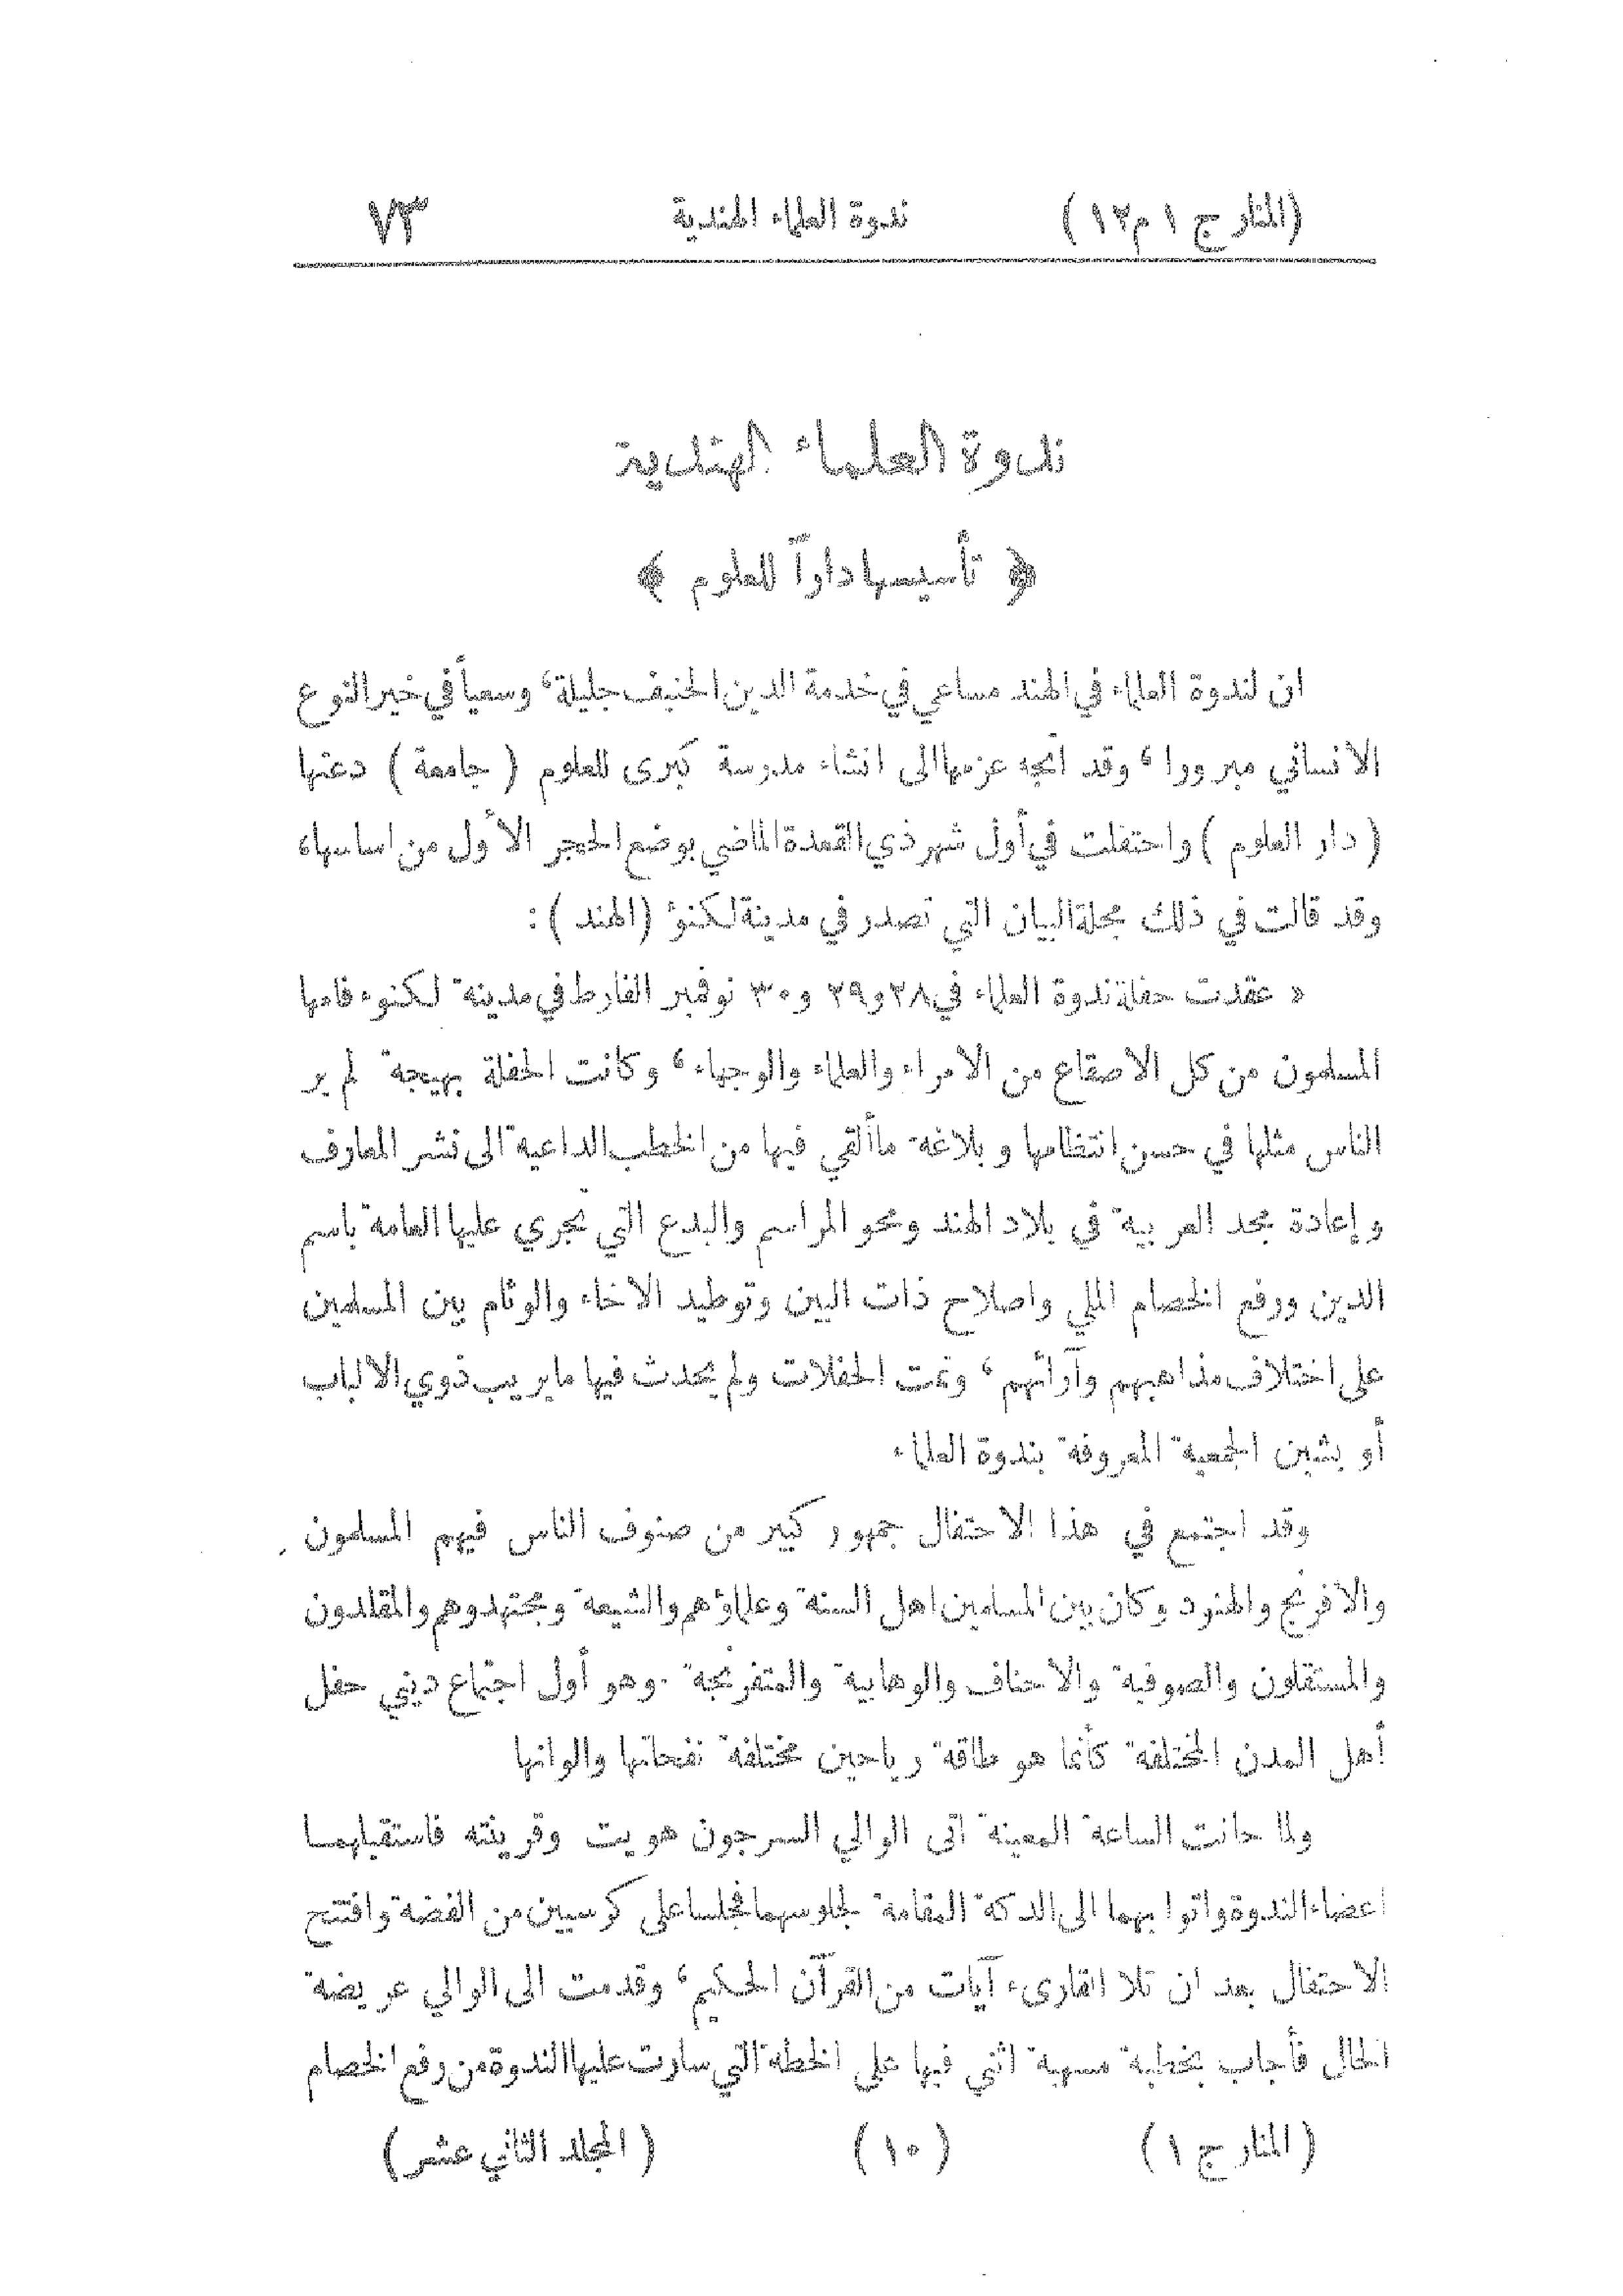 (المنار ج ١ م ١٢) ندوة العلماء الهندية ٧٣
ندوة العلماء الهندية
﴿ تأسيسها داراً للعلوم ﴾
ان لندوة العلماء في الهند مساعي في خدمة الدين الحنيف جليلة، وسعياً في خير النوع
الانساني مبرورا، وقد اتجه عزمها الى انشاء مدرسة كبرى للعلوم ( جامعة ) دعتها
( دار العلوم ) واحتفلت في أول شهر ذي القعدة الماضي بوضع الحجر الأول من اساسها،
وقد قالت في ذلك مجلة البيان التي تصدر في مدينة لكنؤ (الهند ) :
« عقدت حفلة ندوة العلماء في ٢٨ و٢٩ و٣٠ نوفمبر الفارط في مدينة لكنوء فامها
المسلمون من كل الاصقاع من الامراء والعلماء والوجهاء، وكانت الحفلة بهيجة لم ير
الناس مثلها في حسن انتظامها و بلاغة ماألقي فيها من الخطب الداعية الى نشر المعارف
و إعادة مجد العربية في بلاد الهند ومحو المراسم والبدع التي تجري عليها العامة باسم
الدين ورفع الخصام الملي واصلاح ذات البين وتوطيد الاخاء والوئام بين المسلمين
على اختلاف مذاهبهم وآرائهم، وتمت الحفلات ولم يحدث فيها ما يريب ذوي الالباب
أو يشين الجمعية المعروفة بندوة العلماء
وقد اجتمع في هذا الاحتفال جمهور كبير من صنوف الناس فيهم المسلمون
والافرنج والهنود وكان بين المسلمين اهل السنة وعلماؤهم والشيعة ومجتهدوهم والمقلدون
والمستقلون والصوفية والاحناف والوهابية والمتفرنجة . وهو أول اجتماع ديني حفل
أهل المدن المختلفة كأنما هو طاقة رياحين مختلفة نفحاتها والوانها
ولما حانت الساعة المعينة اتى الوالي السرجون هويت وقرينته فاستقبلهما
اعضاء الندوة واتوا بهما الى الدكة المقامة لجلوسهما فجلسا على كرسيين من الفضة وافتتح
الاحتفال بعد ان تلا القارىء آيات من القرآن الحكيم، وقدمت الى الوالي عريضة
الحال فأجاب بخطبة مسهبة اثنى فيها على الخطة التي سارت عليها الندوة من رفع الخصام
(المنار ج ١) (١٠) (المجلد الثاني عشر)